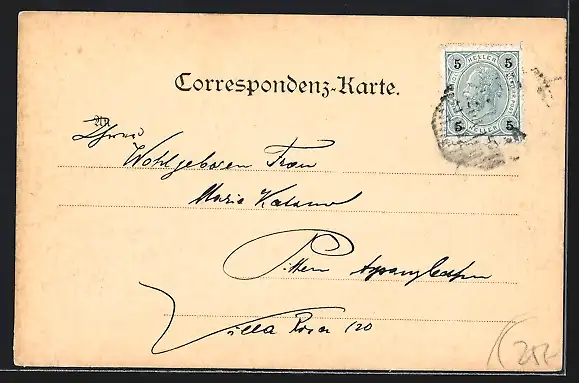 5 HELLER 5
5 HELLER 5
Correspondenz-Karte.
An
Wohlgeboren Frau
Marie
Pitten
Villa Rosa 120